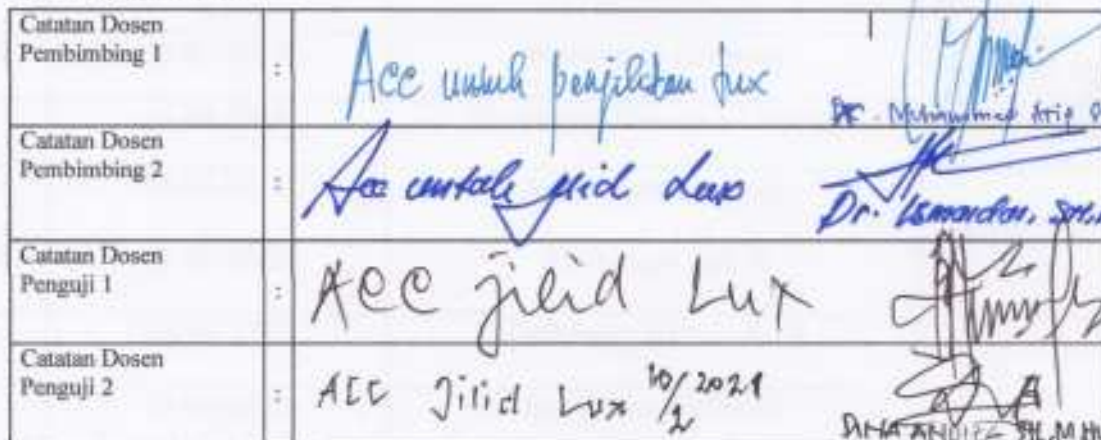 Catatan Dosen
Pembimbing 1
:
Acc untuk penjilidan lux
Dr. Muhammad
Catatan Dosen
Pembimbing 2
:
Acc untuk jilid Lux
Dr. Ismaidar, SH,
Catatan Dosen
Penguji 1
:
ACC jilid Lux
Catatan Dosen
Penguji 2
:
ACC Jilid Lux 10/2 2021
SH, M.Hu